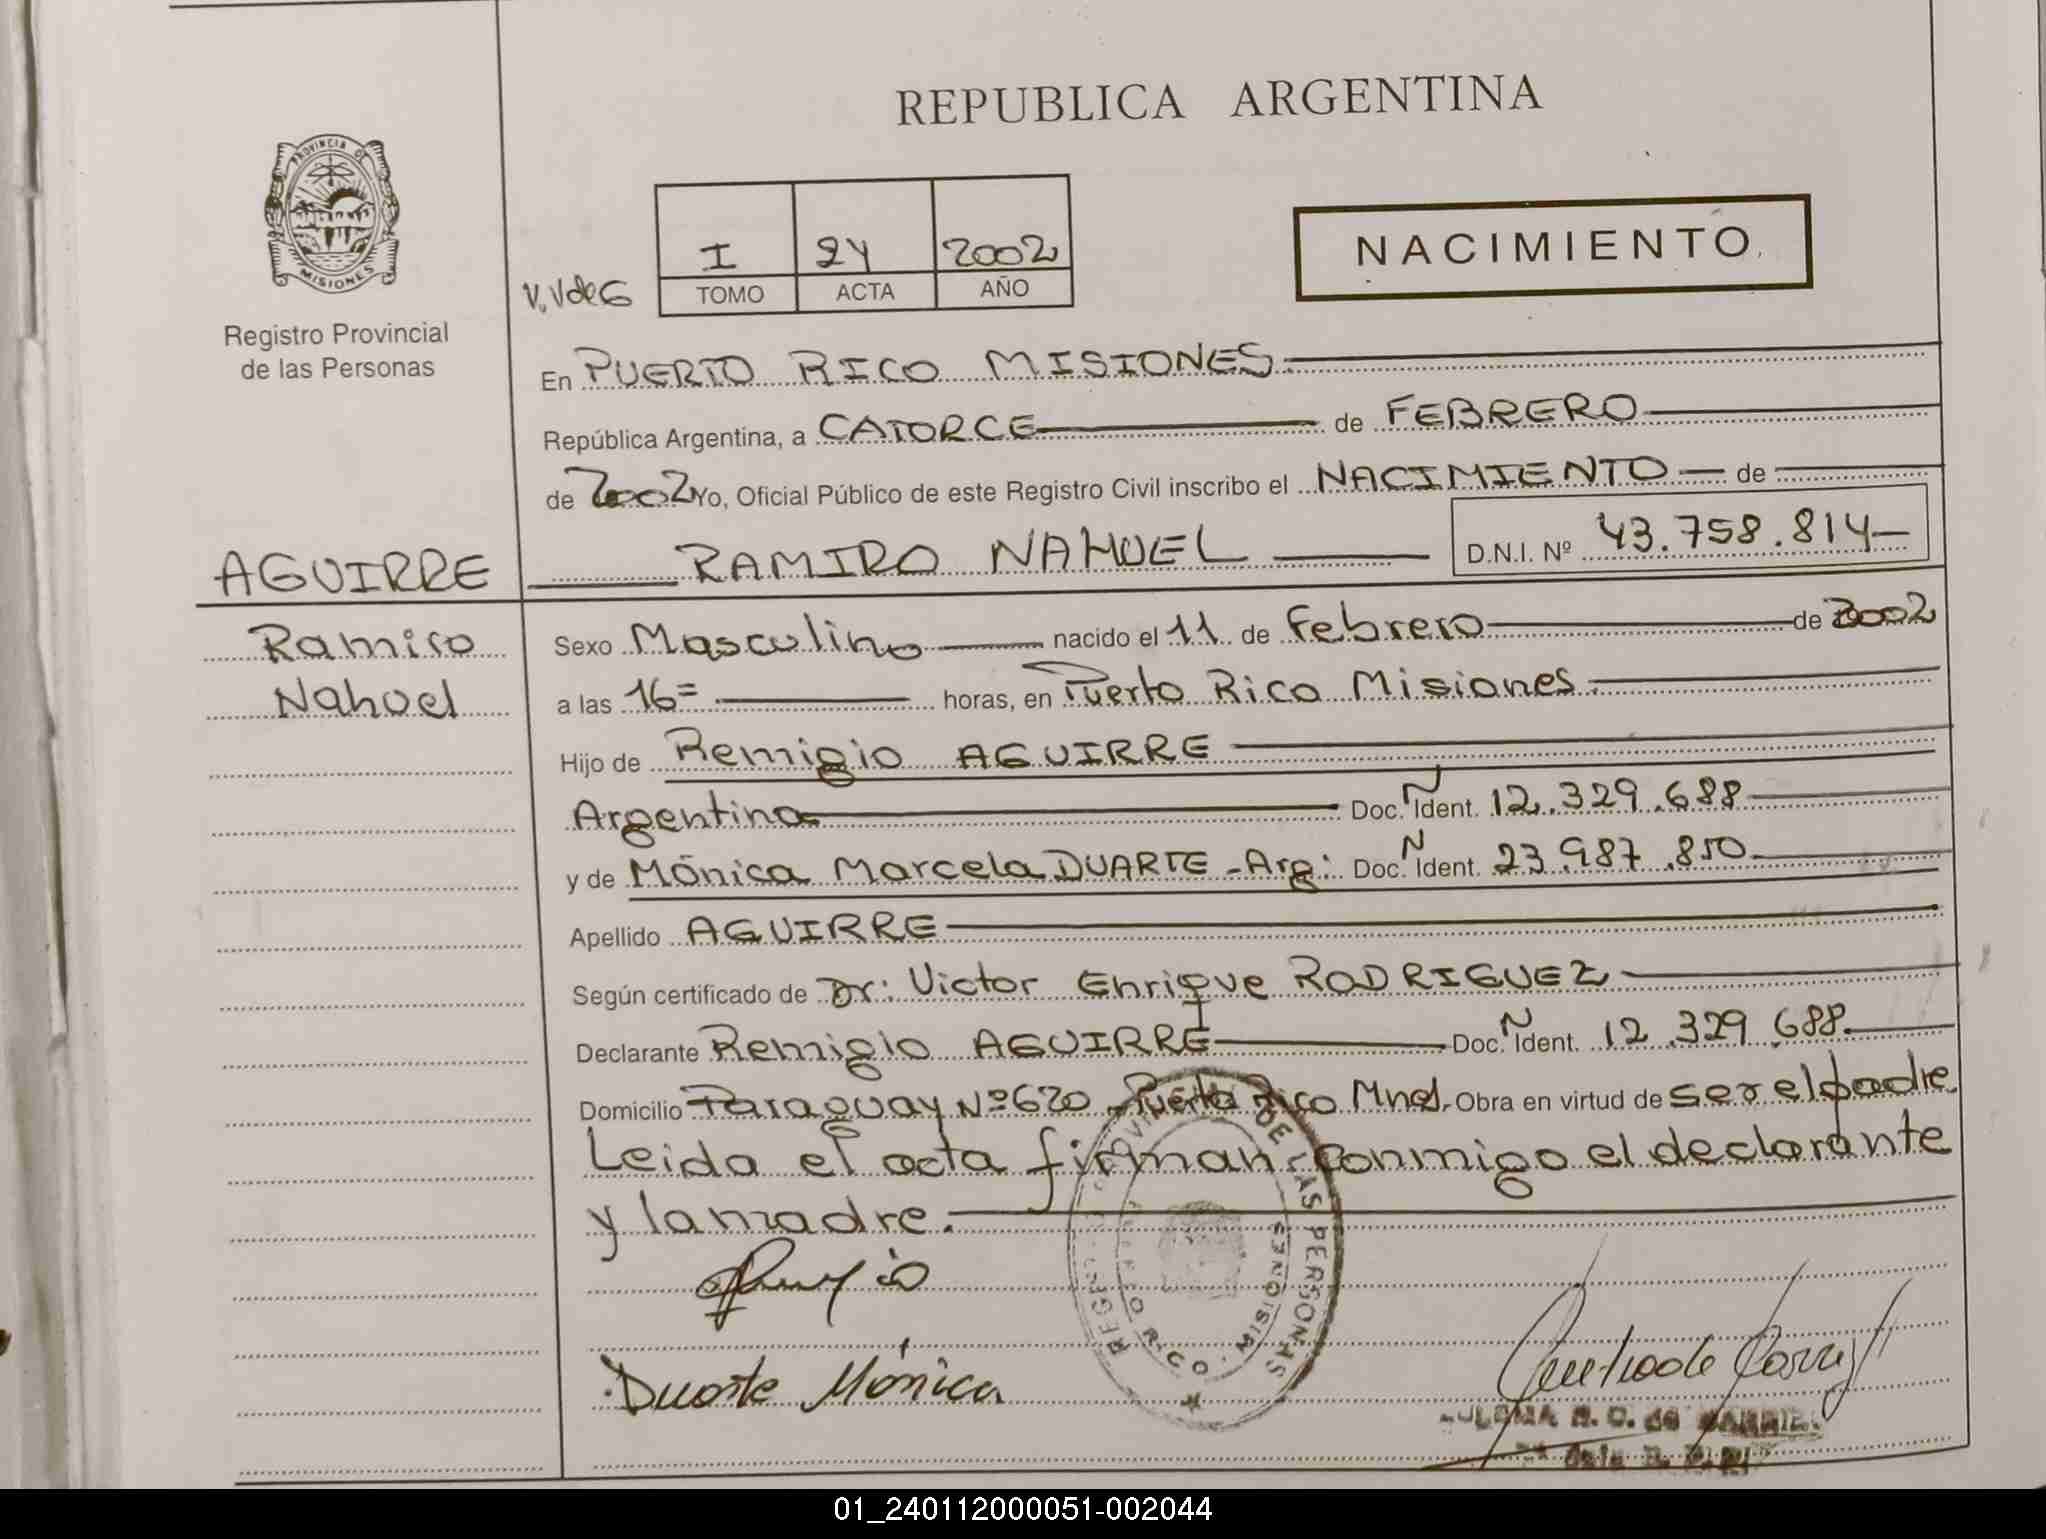 REPUBLICA ARGENTINA
PROVINCIA DE
MISIONES
Registro Provincial
de las Personas
V. V de G
I 24 2002
TOMO ACTA AÑO
NACIMIENTO
En PUERTO RICO MISIONES
República Argentina, a CATORCE de FEBRERO
de 2002 Yo, Oficial Público de este Registro Civil inscribo el NACIMIENTO de
AGUIRRE RAMIRO NAHUEL D.N.I. Nº 43.758.814
Ramiro
Nahuel
Sexo Masculino nacido el 11 de Febrero de 2002
a las 16= horas, en Puerto Rico Misiones
Hijo de Remigio AGUIRRE
Argentino Doc. N Ident. 12.329.688
y de Mónica Marcela DUARTE - Arg: Doc. N Ident. 23.987.850
Apellido AGUIRRE
Según certificado de Dr: Victor Enrique RODRIGUEZ
Declarante Remigio AGUIRRE Doc. N Ident. 12.329.688
Domicilio Paraguay Nº 620 - Puerto Rico Mnes. Obra en virtud de ser el padre
Leida el acta firman conmigo el declarante
y la madre.
DE LAS PERSONAS
RICO - MISIONES
Duarte Mónica
01_240112000051-002044